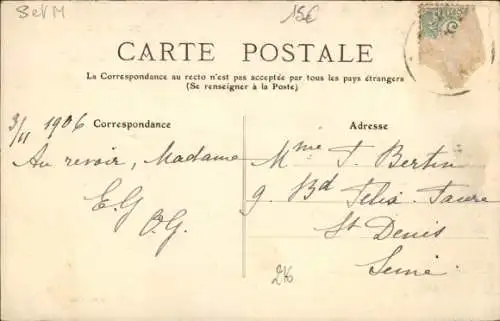 S et M
15€
CARTE POSTALE
La Correspondance au recto n'est pas acceptée par tous les pays étrangers
(Se renseigner à la Poste)
3/11 1906
Correspondance
Au revoir, Madame
E.G
O.G.
Adresse
Mme T. Bertin
9. Bd Félix. Faure
St Denis
Seine
2K